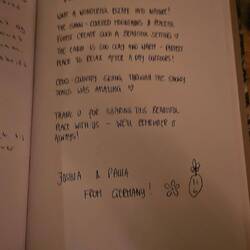 WHAT A WONDERFUL ESCAPE INTO NATURE!
THE SNOW-COVERED MOUNTAINS & PEACEFUL
FOREST CREATE SUCH A BEAUTIFUL SETTING ♡
THE CABIN IS SOO COZY AND WARM - PERFECT
PLACE TO RELAX AFTER A DAY OUTDOORS!
CROSS-COUNTRY SKIING THROUGH THE SNOWY
WAS AMAZING ♡
THANK U FOR SHARING THIS BEAUTIFUL
PLACE WITH US - WE'LL REMEMBER IT
ALWAYS!
& PAULA
FROM GERMANY!